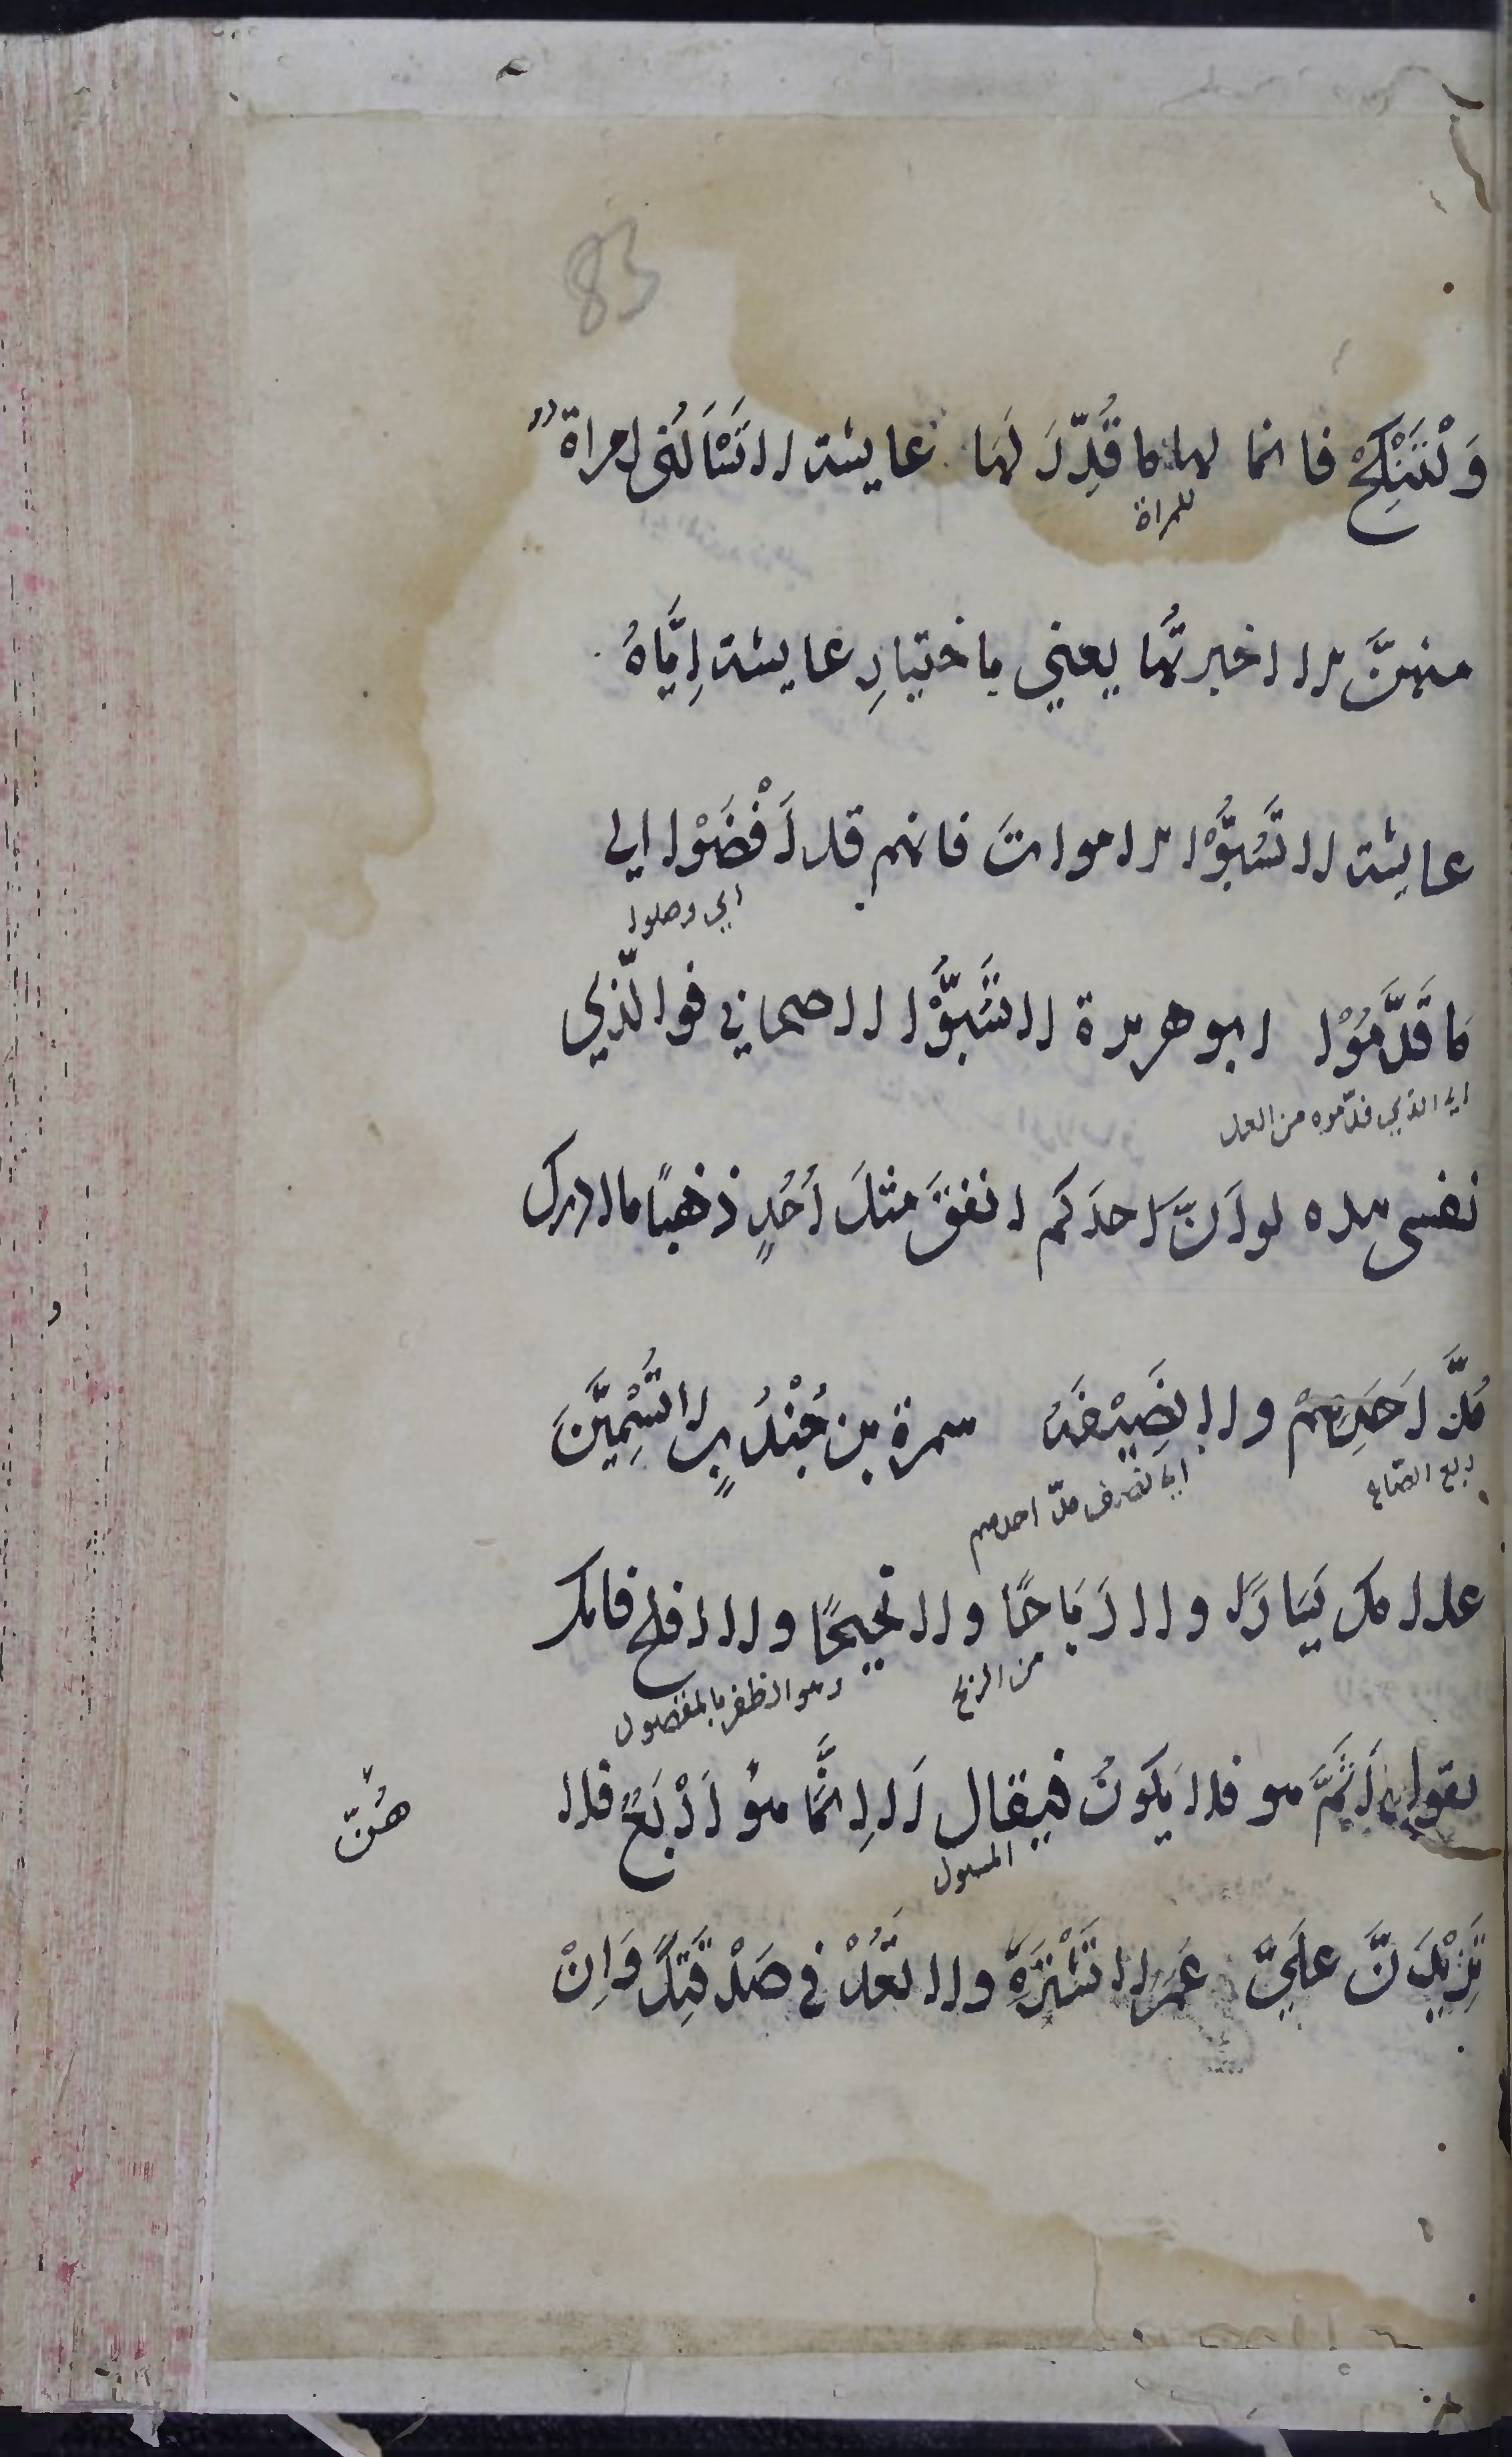 83
وَلْتَنْكِحْ فانما لها ما قُدِّرَ لَها عايشة لا تَسْاَلُنى امراة
للمراة
منهنَّ الا اخبرتُها يعني باختيارِ عايشة اِيَّاهُ
عايشة لا تَسُبُّوْا الاموات فانهم قد اَفْضَوْا الى
اي وصلوا
ما قَدَّمُوْا ابو هريرة لا تَسُبُّوْا اصحابي فوالّذي
اي الذي قدّموه من العمل
نفسى بيده لو اَنَّ احدَكم انفقَ مثلَ اُحُدٍ ذهبًا ما ادرك
مُدَّ اَحَدِهمْ ولا نَصِيْفَهُ سمرة بن جُنْدُبٍ لا تُسَمِّيَنَّ
ربع الصّاع
اي نصف مدّ احدهم
غلامك يَسَارًا ولا رَبَاحًا ولا نَجِيحًا ولا افلح فانك
من الربح
وهو الظفر بالمقصود
تقول اَثَمَّ هو فلا يَكونُ فيقال لا اِنَّمَا هُوَ اَرْبَعٌ فلا
هُنّ
المسول
تَزِيْدُنَّ علَيَّ عُمَر لا تَشْتَرِهِ ولا تَعُدْ في صَدَقَتِكَ وَاِنْ